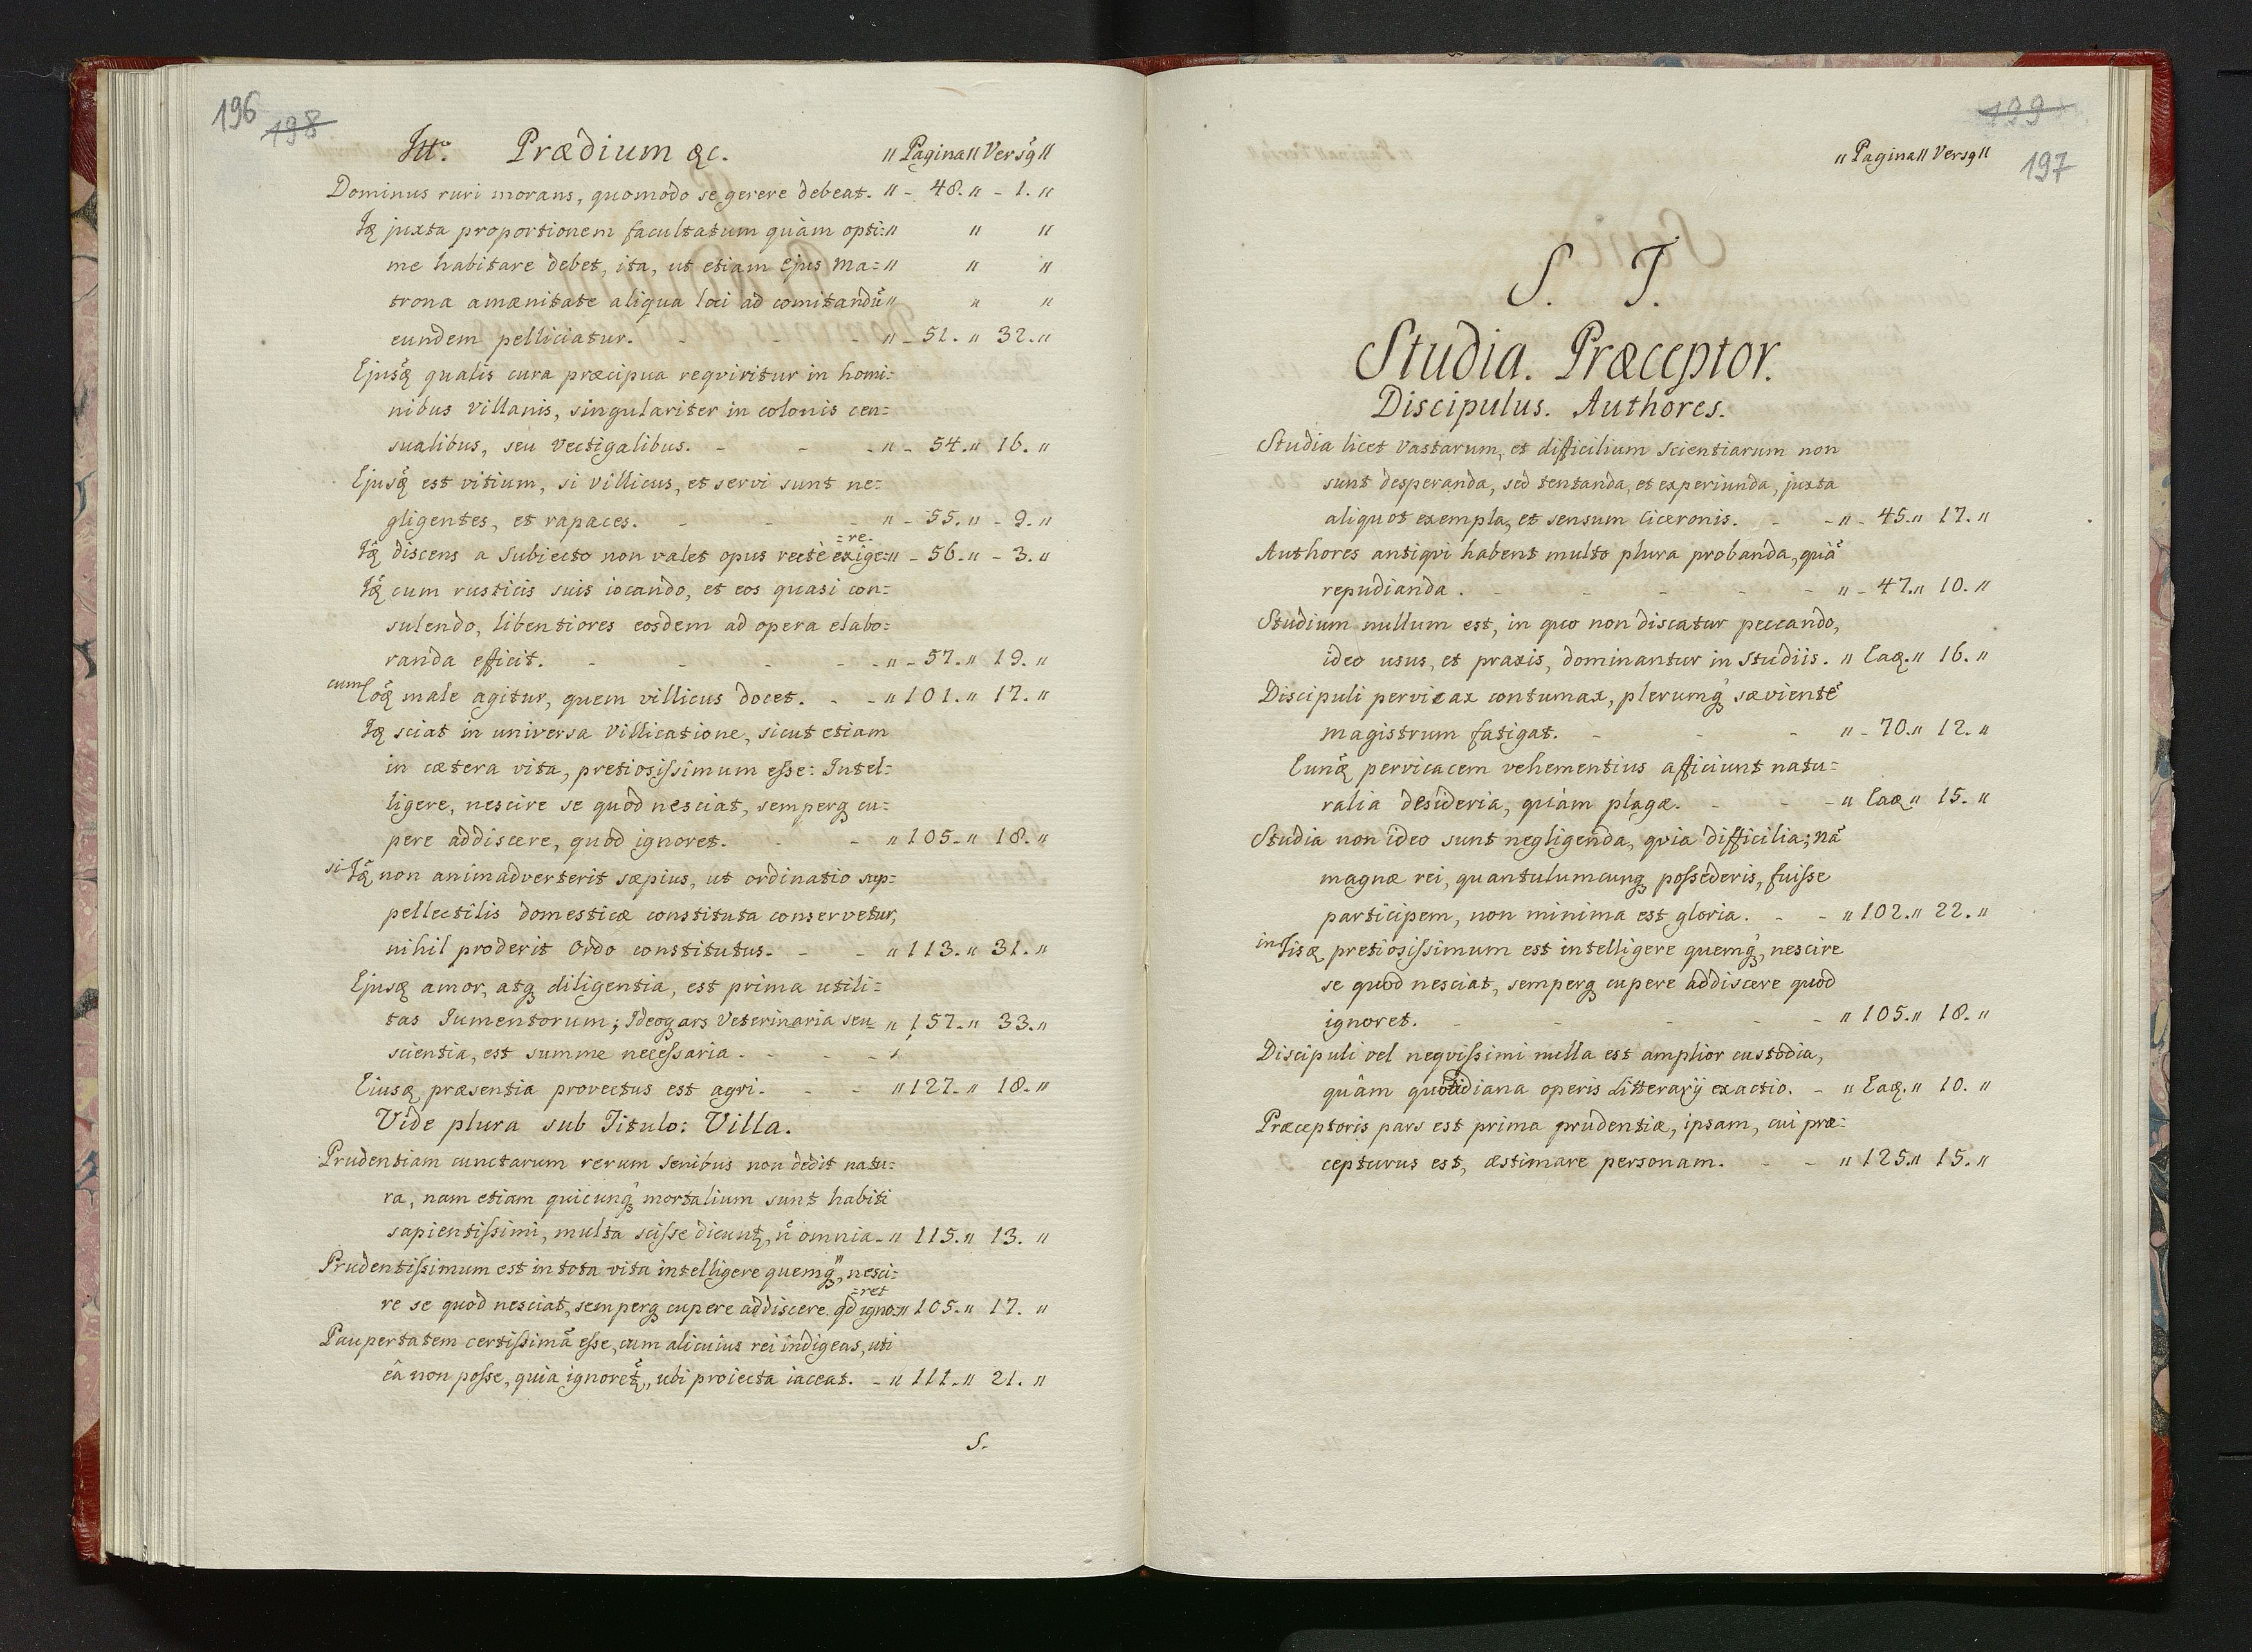 196
198
Itt. Prædium &c. " Pagina " Versq "
Dominus ruri morans, quomodo se gerere debeat. " - 48. " - 1. "
Iq juxta proportionem facultatum quàm opti: " " "
me habitare debet, ita, ut etiam ejus ma= " " "
trona amænitate aliqua loci ad comitandũ " " "
eundem pelliciatur. - - - " - 51. " 32. "
Ejusq̃ qualis cura præcipua reqviritur in homi=
nibus villanis, singulariter in colonis cen=
sualibus, seu vectigalibus. - - - " - 54. " 16. "
Ejusq̃ est vitium, si villicus, et servi sunt ne=
gligentes, et rapaces. - - - " - 55. " - 9. "
=re.
Iq̃ discens a subiecto non valet opus rectè exige= " - 56. " - 3. "
Iq̃ cum rusticis suis iocando, et eos quasi con=
sulendo, libentiores eosdem ad opera elabo=
randa efficit. - - - - - " - 57. " 19. "
cum Eoq̃ male agitur, quem villicus docet. - - " 101. " 17. "
Iq sciat in universa villicatione, sicut etiam
in cætera vita, pretiosissimum esse: Intel=
ligere, nescire se quod nesciat, semperq cu=
pere addiscere, quod ignoret. - - " 105. " 18. "
si Iq̃ non animadverterit sæpius, ut ordinatio sup=
pellectilis domesticæ constituta conservetur,
nihil proderit Ordo constitutus. - - " 113. " 31. "
Ejusq amor, atq diligentia, est prima utili=
tas Iumentorum; Ideoq ars Veterinaria seu " 157. " 33. "
scientia, est summe necessaria. - - -
Eiusq præsentia provectus est agri. - - " 127. " 18. "
Vide plura sub Titulo: Villa.
Prudentiam cunctarum rerum senibus non dedit natu=
ra, nam etiam quicunq mortalium sunt habiti
sapientissimi, multa scisse dicunt, ñ omnia - " 115. " 13. "
Prudentissimum est in tota vita intelligere quemq, nesci=
=ret
re se quod nesciat, semperq cupere addiscere qd igno= " 105. " 17. "
Paupertatem certissimã esse, cum alicuius rei indigeas, uti
eâ non posse, quia ignoret̃, ubi proiecta iaceat. - " 111. " 21. "
S.
199
197
" Pagina " Versq "
S. T.
Studia. Præceptor.
Discipulus. Authores.
Studia licet vastarum, et difficilium scientiarum non
sunt desperanda, sed tentanda, et experiunda, juxta
aliquot exempla, et sensum Ciceronis. - - " - 45. " 17. "
Authores antiqvi habent multo plura probanda, quã
repudianda. - - - - - " - 47. " 10. "
Studium nullum est, in quo non discatur peccando,
ideo usus, et praxis, dominantur in studiis. " Eaq. " 16. "
Discipuli pervicax contumax, plerumq sævientẽ
magistrum fatigat. - - - " - 70. " 12. "
Eunq̃ pervicacem vehementius afficiunt natu=
ralia desideria, quàm plagæ. - - - " Eaq " 15. "
Studia non ideo sunt negligenda, qvia difficilia; nã
magnæ rei, quantulumcunq possederis, fuisse
participem, non minima est gloria. - - " 102. " 22. "
in Iisq pretiosissimum est intelligere quemq, nescire
se quod nesciat, semperq cupere addiscere quod
ignoret. - - - - - " 105. " 18. "
Discipuli vel neqvissimi nulla est amplior custodia,
quâm quotidiana operis Litterarij exactio. - " Eaq. " 10. "
Præceptoris pars est prima prudentiæ, ipsam, cui præ=
cepturus est, æstimare personam. - - " 125. " 15. "